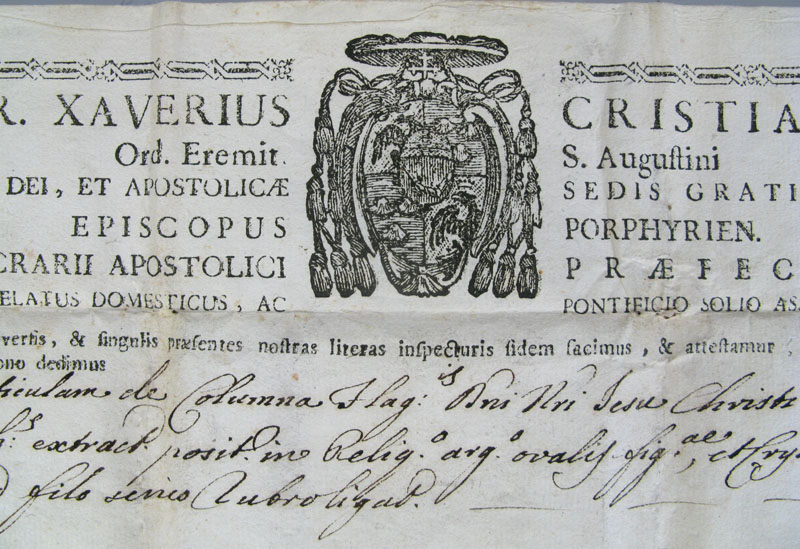 R. XAVERIUS CRISTIA
Ord. Eremit. S. Auguſtini
DEI, ET APOSTOLICÆ SEDIS GRATI
EPISCOPUS PORPHYRIEN.
CRARII APOSTOLICI PRÆFEC
ELATUS DOMESTICUS, AC PONTIFICIO SOLIO AS
verſis, & ſingulis præſentes noſtras literas inſpecturis fidem facimus, & atteſtamur,
ono dedimus
ticulam de Columna Flag:is Dni Nri Jesu Christi
extract posit. in Relig.o arg.o ovalis fig.ae, et Cry
filo serico rubro ligad.